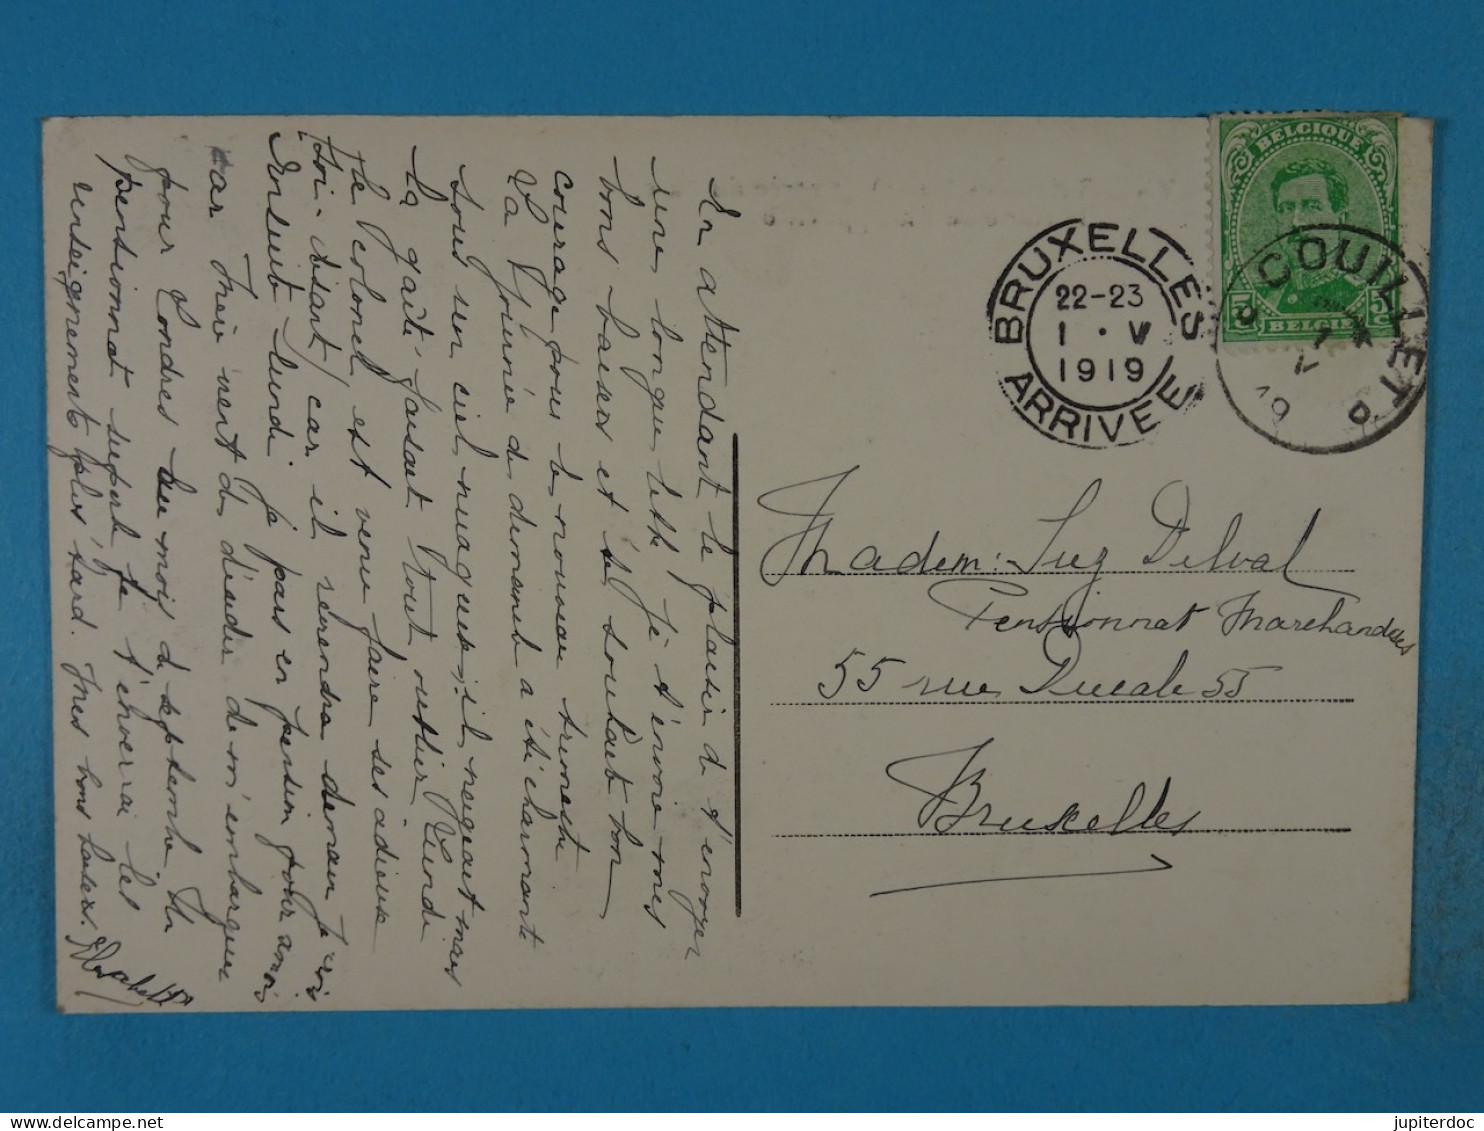 En attendant le plaisir d'envoyer
une longue lettre je t'envoie mes
bons baisers et te souhait bon
courage pour le nouveau trimestre
La journée de dimanche a été charmante
sous un ciel nuageux, il neigeait mais
la gaîté faisait tout oublier. Lundi
the colonel est venu faire ses adieux
(soi-disant) car il reviendra demain je crois
ensuite lundi je pars en pension pour 2 mois
car Irein vient de décider de m'embarquer
pour Londres au mois de septembre. Un
pensionnat superbe je t'enverrai les
renseignements plus tard. Mes bons baisers.
BELGIQUE
5 5
BELGIE
COUILLET
1 V
19
BRUXELLES
22-23
1 · V
1919
ARRIVEE
Madem: Suz Delval
Pensionnat Marchandes
55 rue Ducale 55
Bruxelles
jupiterdoc